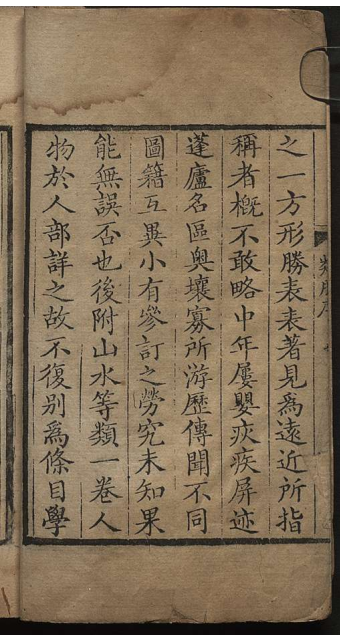 之一方形勝表表著見為遠近所指
稱者概不敢略中年屢嬰疢疾屏迹
蓬廬名區奧壤寡所游歷傳聞不同
圖籍互異小有參訂之勞究未知果
能無誤否也後附山水等類一卷人
物於人部詳之故不復别爲條目學